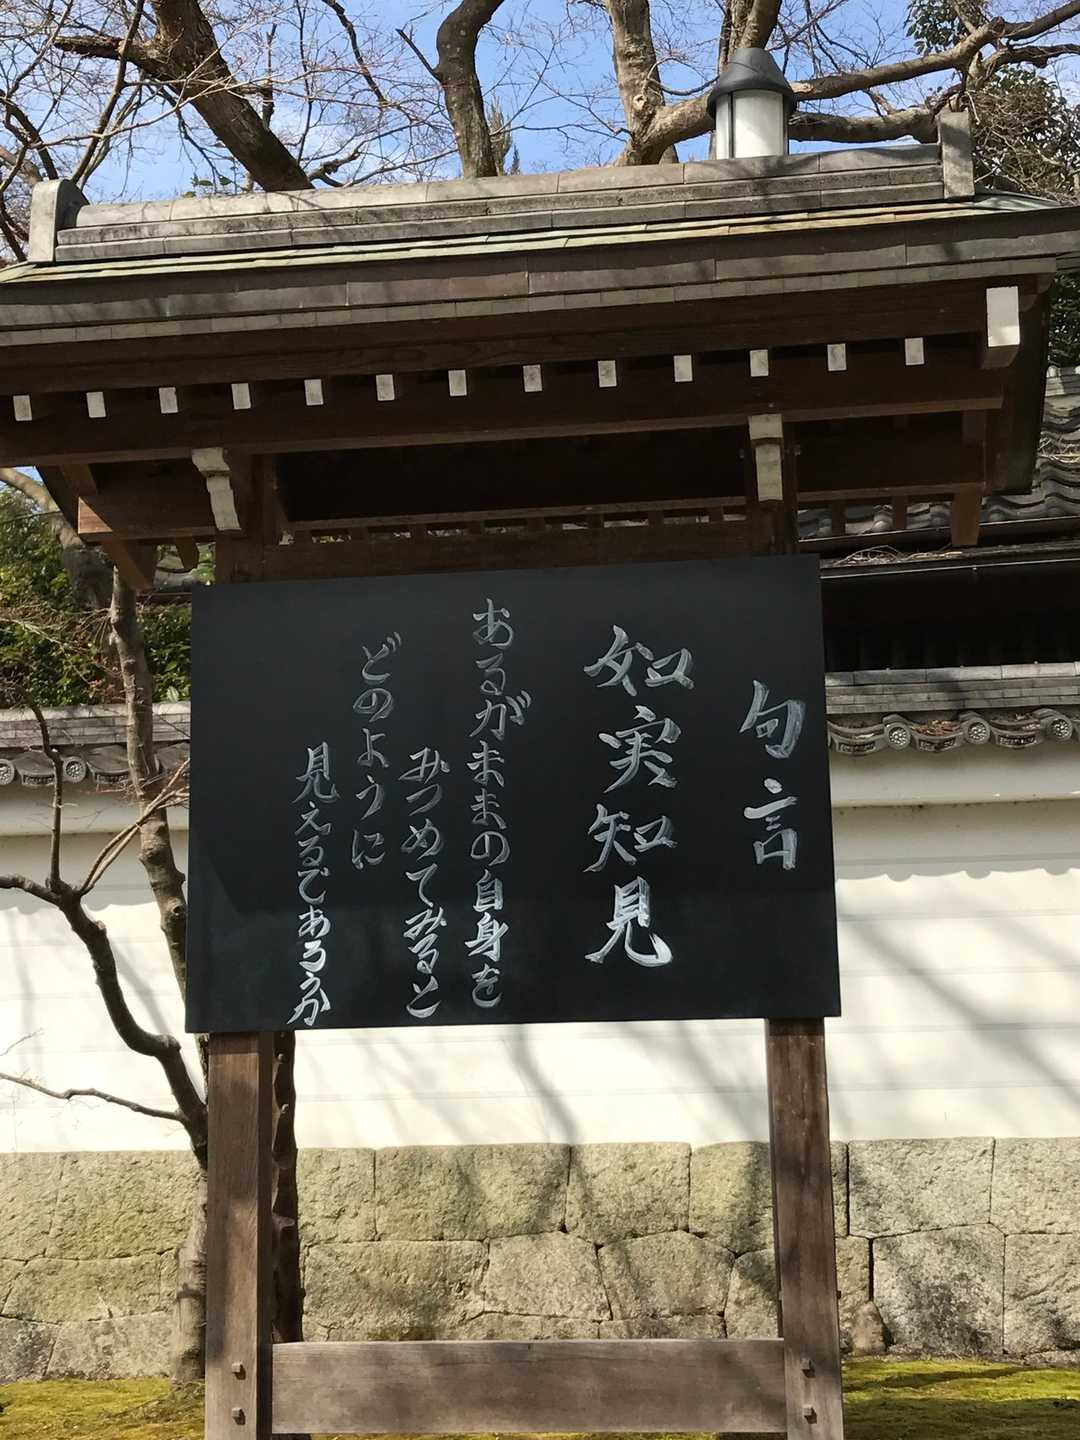 句言
如実知見
あるがままの自身を
みつめてみると
どのように
見えるであろうか